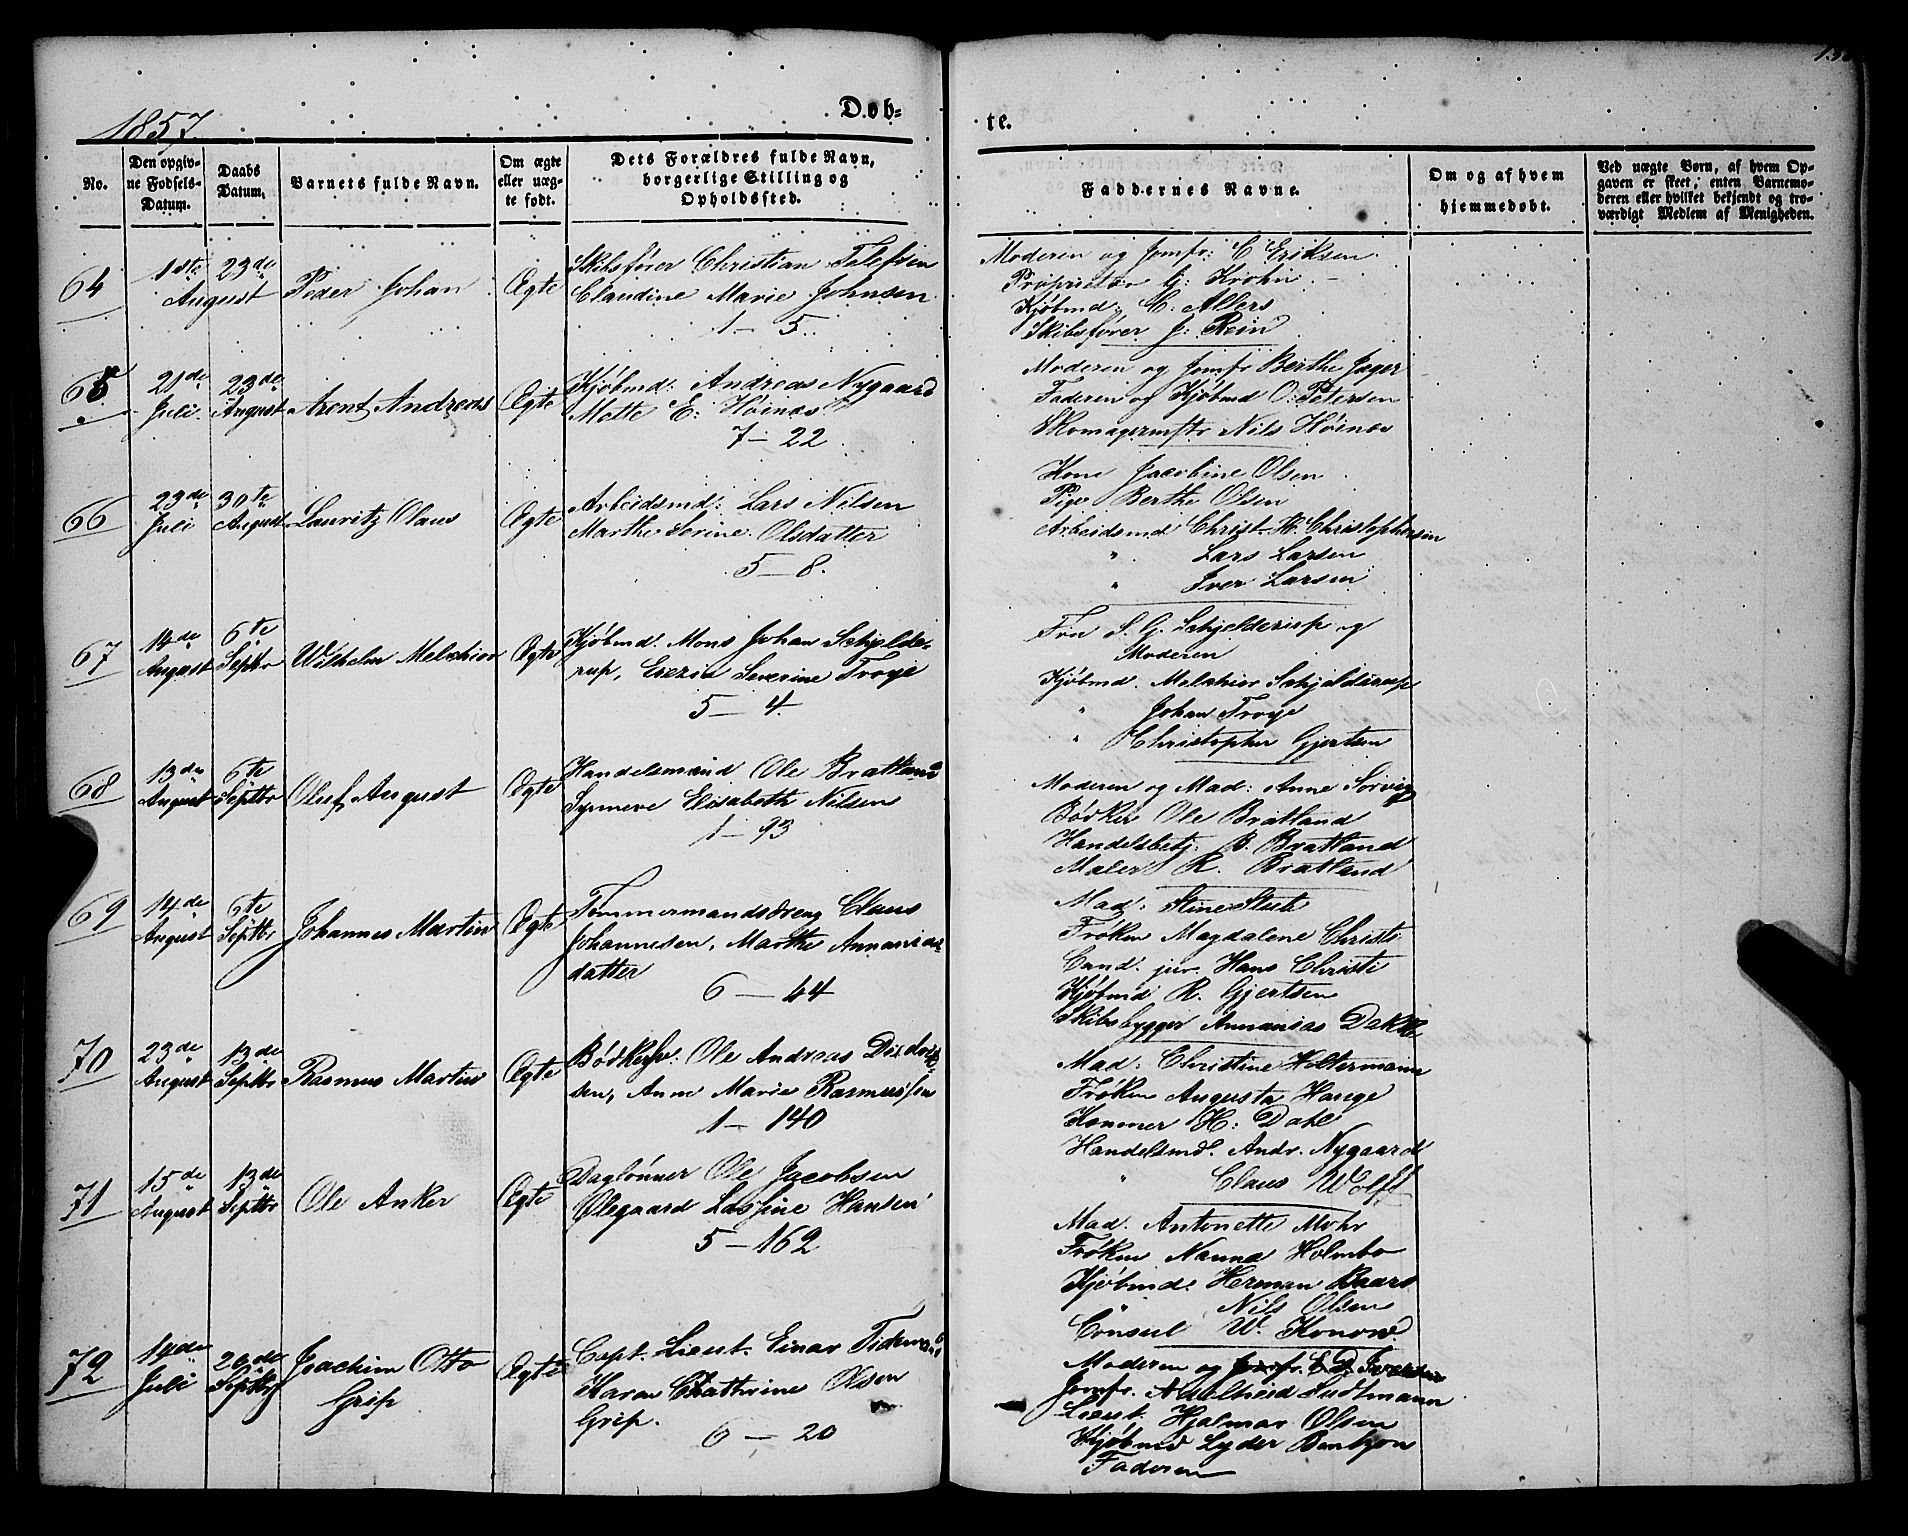 1857
Døb-
te.
No.
Den opgiv-
ne Fødsels-
Datum.
Daabs
Datum.
Barnets fulde Navn.
Om ægte
eller uæg-
te født.
Dets Forældres fulde Navn,
borgerlige Stilling og
Opholdssted.
Faddernes Navne.
Om og af hvem
hjemmedøbt.
Ved uægte Born, af hvem Op-
gaven er skeet, enten Barnemo-
deren eller hvilket bekjendt og tro-
værdigt Medlem af Menigheden.
64
1ste
August
23de
Peder Johan
Ægte
Skibsfører Christian Telefsen
Claudine Marie Johnsen
1 - 5.
Moderen og Jomfr: C Eriksen
Proprietær G: Krohn
Kjøbmd: C. Allers
Skibsfører J: Rein
65
21de
Juli
23de
August
Arent Andreas
Ægte
Kjøbmd: Andreas Nygaard
Mette E: Høinæs
7 - 22
Moderen og Jomfr Berthe Jager
Faderen og Kjøbmd O: Petersen
Skomagermstr Nils Høinæs
66
23de
Juli
30te
August
Lauritz Olaus
Ægte
Arbeidsmd: Lars Nilsen
Marthe Serine Olsdatter
5 - 8.
Kone Jacobine Olsen
Pige Berthe Olsen
Arbeidsmd Christ. H. Christophersen
" Lars Larsen
" Iver Larsen
67
14de
August
6te
Septbr
Wilhelm Melchior
Ægte
Kjøbmd. Mons Johan Schjelde-
rup, Severine Troye
5 - 4.
Frü S. G. Schjelderup og
Moderen
Kjøbmd. Melchior Schjelderup
" Johan Troye
" Christopher Gjertsen
68
13de
August
6te
Septbr
Oluf August
Ægte
Handelsmand Ole Bratland
Synneve Elisabeth Nilsen
1 - 93
Moderen og Mad: Anne Sørvig
Bødker Ole Bratland
Handelsbetj: B. Bratland
Maler R. Bratland
69
14de
August
6te
Septbr
Johannes Martin
Ægte
Tømmermandsdreng Claus
Johannesen, Marthe Annanias-
datter
6 - 44
Mad: Stine
Frøken Magdalene Christi
Cand. jur. Hans Christi
Kjøbmd R. Gjertsen
Skibsbygger Annanias Dekke
70
23de
August
13de
Septbr
Rasmus Martin
Ægte
Bødkersv: Ole Andreas Didrik-
sen, Anne Marie Rasmussen
1 - 140
Mad: Christine Holtermann
Frøken Augusta Hauge
H: Dahl
Handelsmd. Andr. Nygaard
" Claus Wolff
71
15de
August
13de
Septbr
Ole Anker
Ægte
Daglønner Ole Jacobsen
Olegaard Lassine Hansen
5 - 162
Mad. Antonette Mohr
Frøken Nanna Holmbo
Kjøbmd. Herman Baars
" Nils Olsen
Consul W. Konow.
72
14de
Juli
20de
Septbr
Joachim Otto
Grip
Ægte
Capt. Lieut. Einar Tidemand
Karen Cathrine Olsen
Grip.
6 - 20
Moderen og Jomfr. E. D. Iversen
Jomfr. Adelheid Sudtmann
Lieut. Hjalmar Olsen
Kjøbmd Lyder Bentzon
Faderen